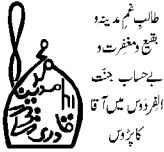 طالبِ غمِ مدینہ و
بقیع و مغفرت و
بے حساب جنّت
الفِردَوس میں آقا
کا پڑوس